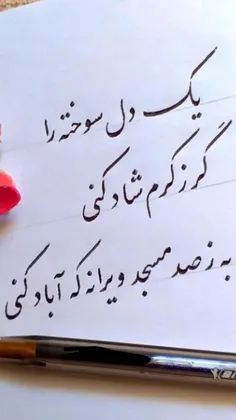 یک دل سوخته را
گر ز کرم شاد کنی
به ز صد مسجد ویرانه که آباد کنی